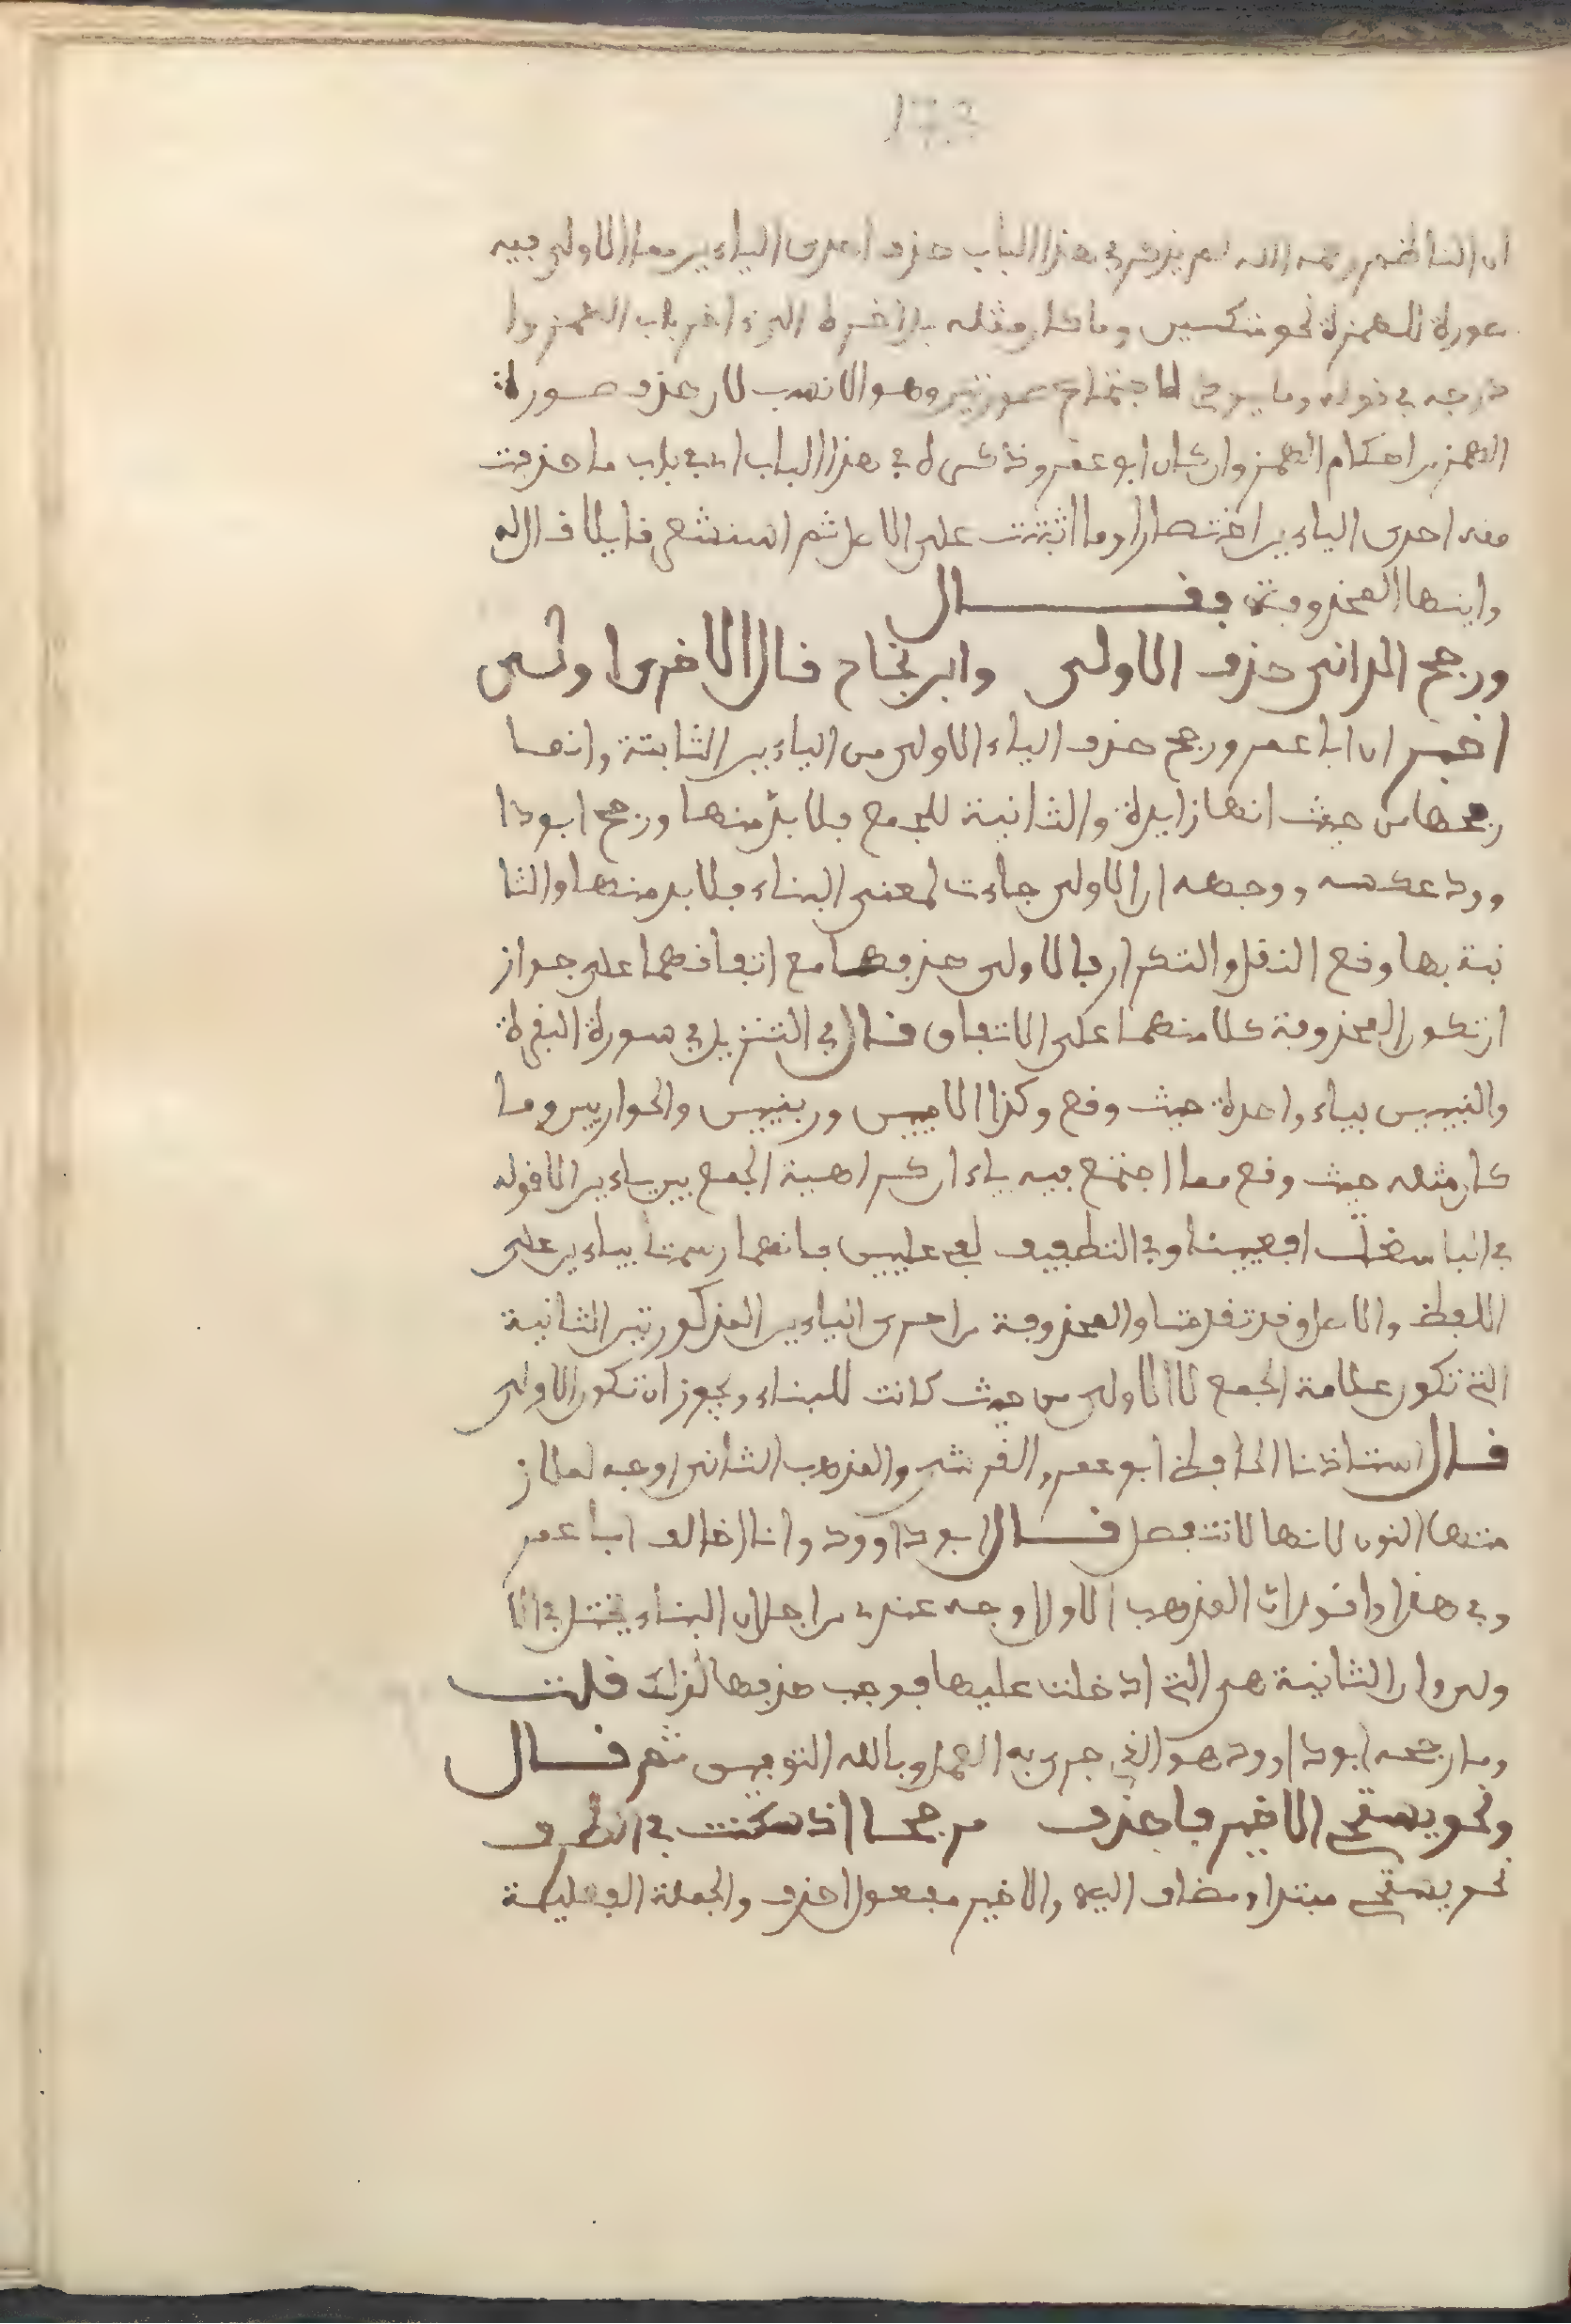 173
ان الناظم رحمه الله لم يذكر في هذا الباب حذف احدى الياءين مما الاولى فيه
صورة للهمزة نحو متكـين وما كان مثله بل اخره الى اخر باب الهمز وا
درجه في قوله وما يودي لاجتماع صورتين وهو الانسب لان حذف صورة
الهمز من احكام الهمز وان كان ابو عمرو ذكره في هذا الباب اي في باب ما حذفت
منه احدى الياءين اختصارا وما اثبتت على الاصل ثم استشعر قايلا قال له
وايتها المحذوفة فقال
ورجح الداني حذف الاولى وابن نجاح قال الاخرى اولى
اخبر ان ابا عمرو رجح حذف الياء الاولى من الياءين الثابتة وانما
رجحها من حيث انها زايدة والثانية للجمع فلا بد منها ورجح ابو دا
وود عكسه ووجهه ان الاولى جاءت لمعنى البناء فلا بد منها والثا
نية بها وقع الثقل والتكرار فالاولى حذفها مع اتفاقهما على جواز
ان تكون المحذوفة كلا منهما على الاتفاق قال في التنزيل في سورة البقرة
والنبيـن بياء واحدة حيث وقع وكذا الاميـن وربنيـن والحواريـن وما
كان مثله حيث وقع مما اجتمع فيه ياءان كراهية الجمع بين ياءين الا قوله
في الباسقات افعيينا وفي التطفيف لفي عليين فانهما رسمتا بياءين على
اللفظ والاصل وقد تقدمتا والمحذوفة من احدى الياءين المذكورتين الثانية
التي تكون علامة الجمع لا الاولى من حيث كانت للبناء ويجوز ان تكون الاولى
قال استاذنا الحافظ ابو عمرو القرشي والمذهب الثاني اوجه لملاز
متها النون لانها لا تنفصل قال ابو داوود وانا اخالف ابا عمر
و في هذا واقول ان المذهب الاول اوجه عندي من اجل ان البناء يختل في الا
ولى وان الثانية هي التي ادخلت عليها فوجب حذفها لذلك قلت
وما رجحه ابو داوود هو الذي جرى به العمل وبالله التوفيق ثم قال
ونحو يستحي الاخير فاحذف مرجحا اذ سكنت في الطرف
نحو يستحي مبتدا ومضاف اليه والاخير مفعول احذف والجملة الفعلية